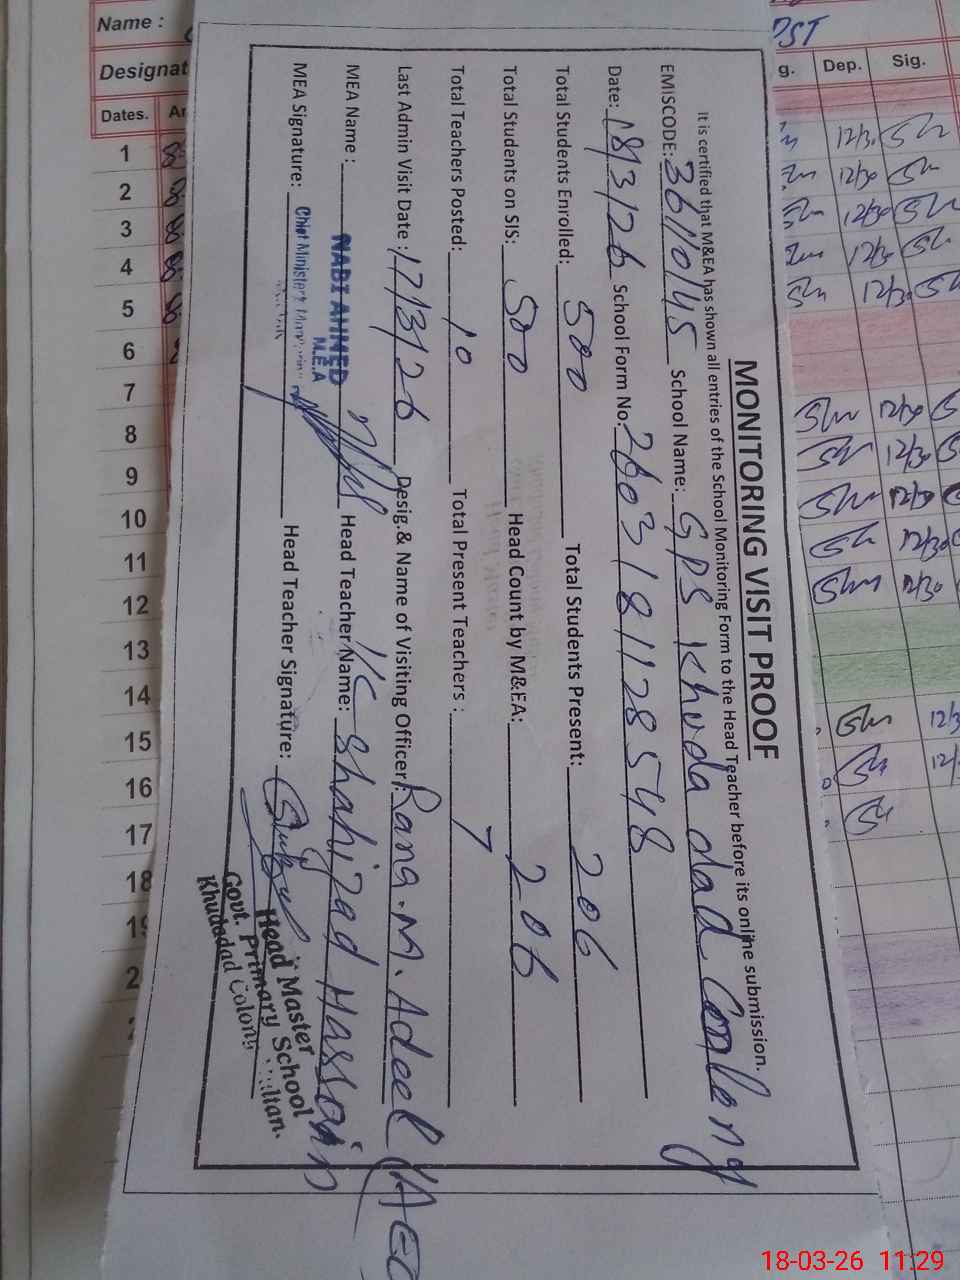 MONITORING VISIT PROOF
It is certified that M&EA has shown all entries of the School Monitoring Form to the Head Teacher before its online submission.
EMISCODE: 36110145 School Name: GPS Khuda dad Conlony
Date: 18/3/26 School Form No: 2603181128548
Total Students Enrolled: 500 Total Students Present: 206
Total Students on SIS: 500 Head Count by M&EA: 206
Total Teachers Posted: 10 Total Present Teachers : 7
Last Admin Visit Date : 17/3/26 Desig.& Name of Visiting Officer: Rana.M. Adeel (AEO
MEA Name : NABI AHMED Head Teacher Name: Shahzad Hassain
M.E.A
MEA Signature: Chief Minister's Head Teacher Signature:
Head Master
Govt. Primary School
Khudadad Colony
Name :
Designat
Dates.
1
2
3
4
5
6
7
8
9
10
11
12
13
14
15
16
17
18
PST
g. Dep. Sig.
12/30
12/30
12/30
12/30
12/30
12/30
12/30
12/30
12/30
12/30
18-03-26 11:29